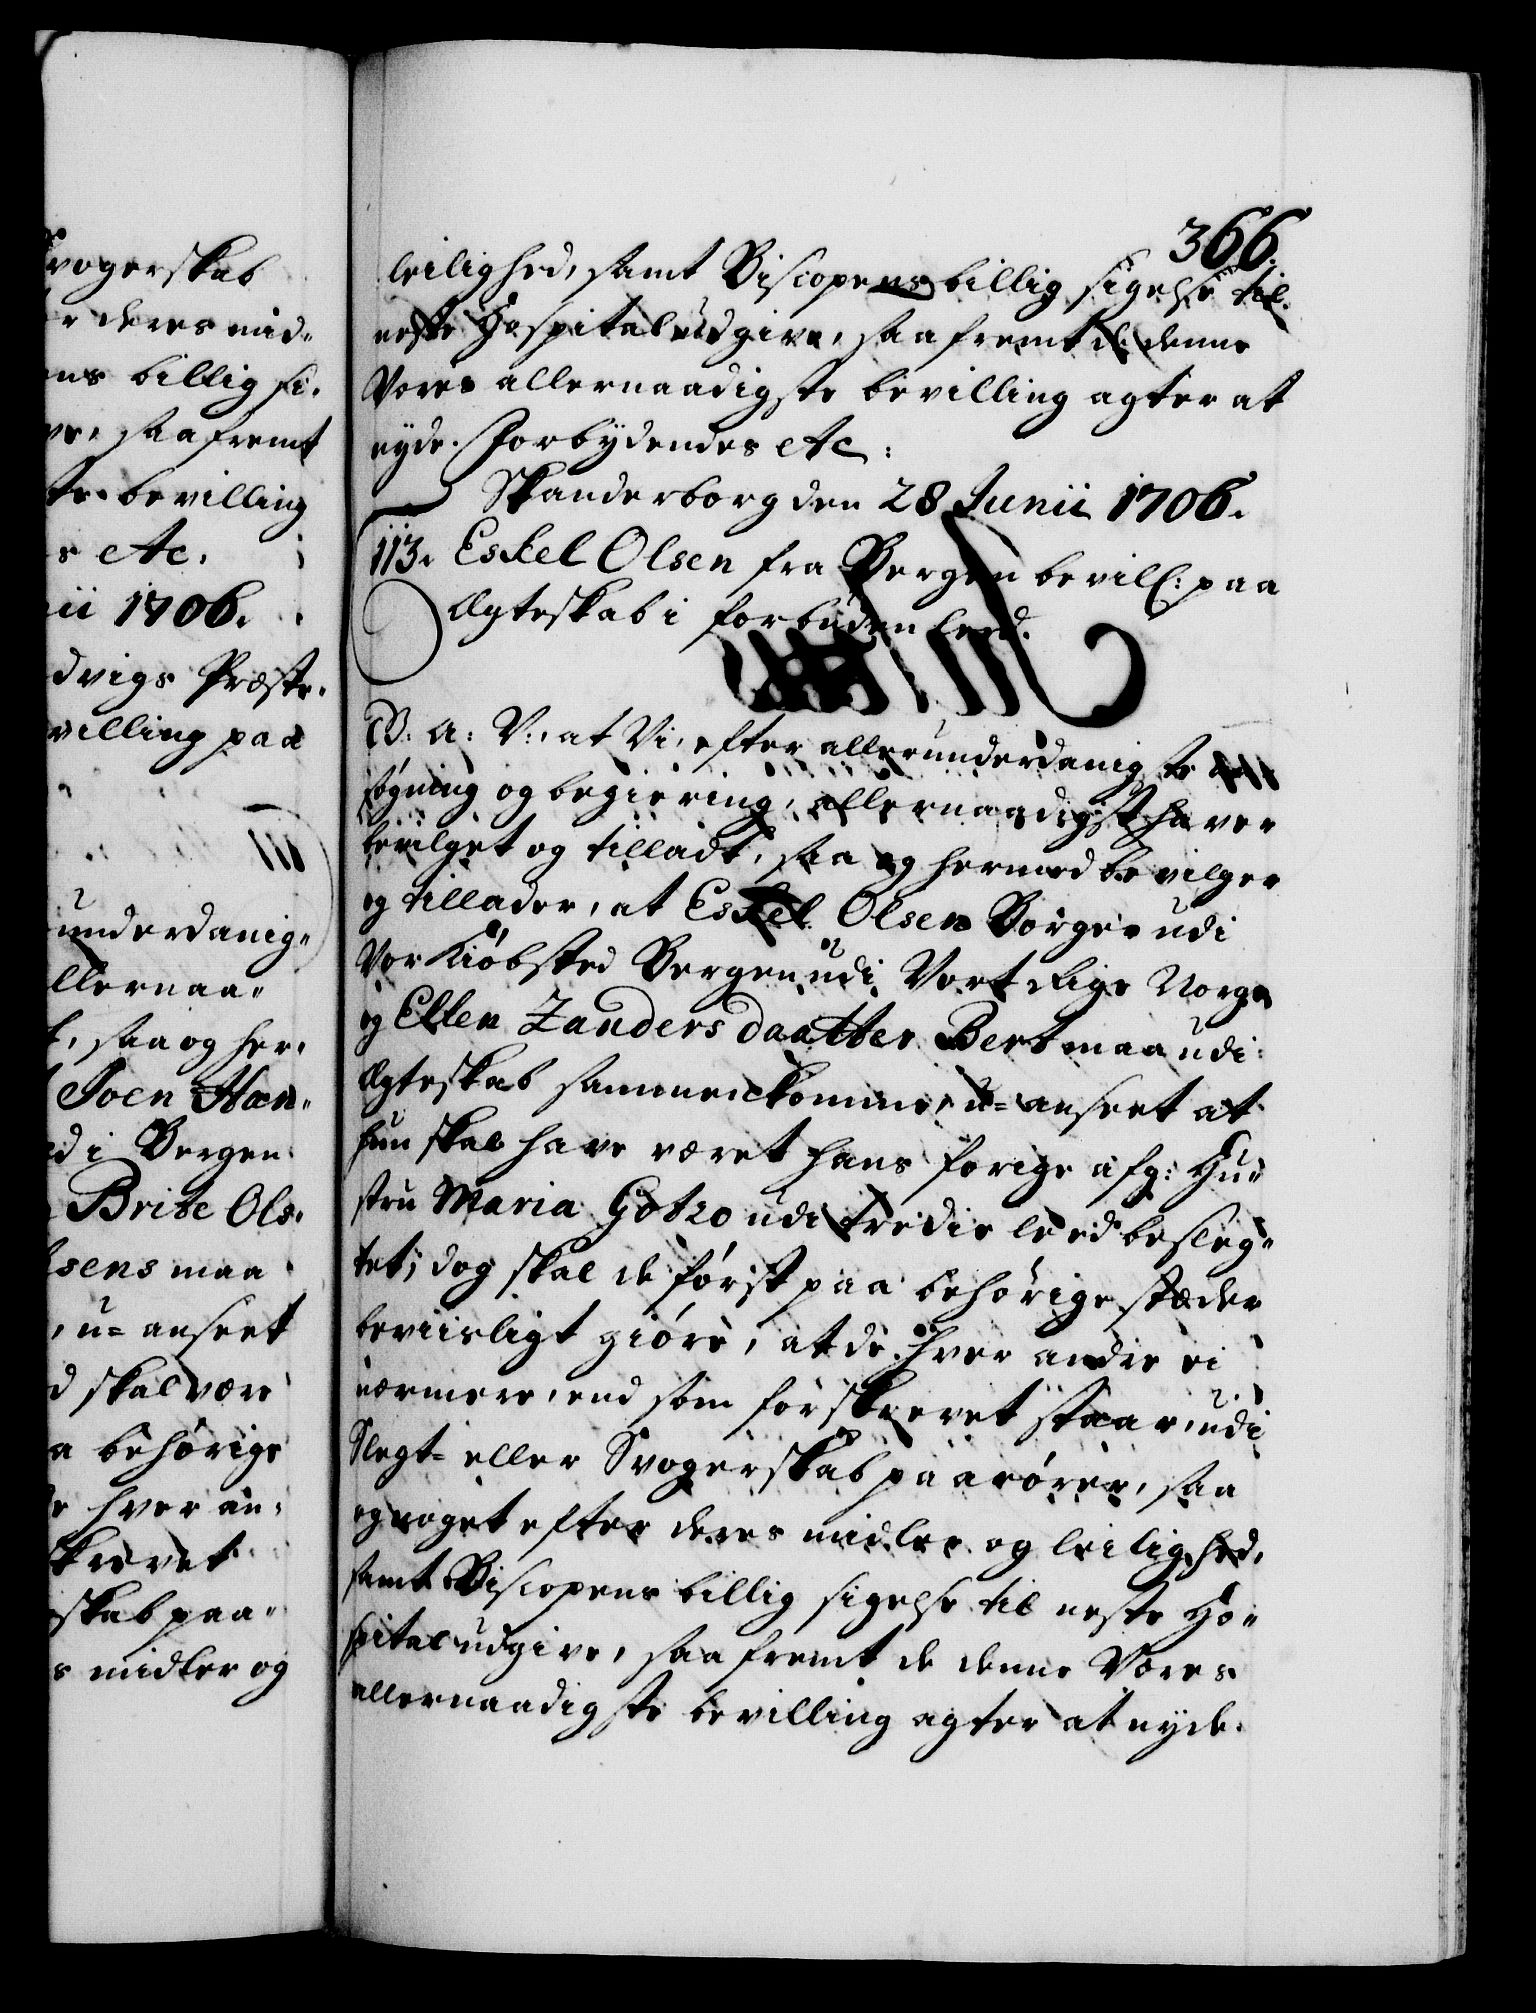 vogerskab
r deres mid-
ens billig si-
ve, saafremt
ste bevilling
s etc.
ii 1706.
dvigs Præste-
villing paa
111
underdanig-
llernaa-
t, saa og her-
Joen Han-
d i Bergen
Brite Ols-
sens maa
, u= anseet
d skal være
a behörige
e hver an-
skrevet
skab paa-
s midler og
366.
leilighed, samt Biscopens billig sigelse til
neste Hospital udgive, saafremt de denne
Vores allernaadigste bevilling agter at
nyde. Forbydendes etc:
Skanderborg den 28 Junii 1706.
113. Eskel Olsen fra Bergen bevill: paa
Ægteskab i forbuden leed.
G: A: V:, at Vi, efter allerunderdanigste an-
søgning og begiering, allernaadigst haver
bevilget og tilladt, saa og hermed bevilger
og tillader, at Eskel Olsen Borger udi
Vor Kiöbsted Bergen udi Vort Rige Norge
og Ellen Zandersdaatter Bert maa udi
Ægteskab sammenkomme, u= anseet at
hun skal have været hans forige afg: Hu-
stru Maria Gotzo udi tredie leed besleg-
tet; dog skal de först paa behörige stæder
beviisligt giöre, at de hver andre ei
nærmere, end som forskrevet staar, udi
Slegt= eller Svogerskab paarörer, saa
og noget efter deres midler og leilighed,
samt Biscopens billig sigelse til neste Ho-
spital udgive, saafremt de denne Vores
allernaadigste bevilling agter at nyde.